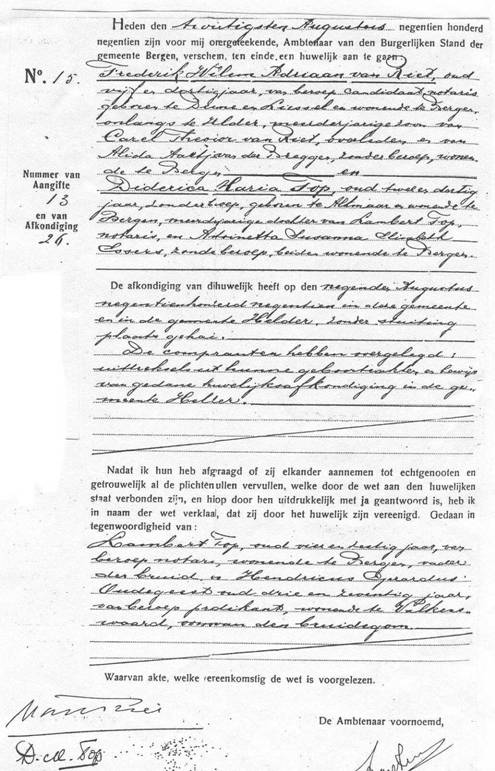 Heden den twintigsten Augustus negentien honderd
negentien zijn voor mij onergeteekende, Ambtenaar van den Burgerlijken Stand der
gemeente Bergen, verschenen, ten einde een huwelijk aan te gaan:
Nº. 15.
Frederik Willem Adriaan van Riet, oud
vijf en dertig jaar, van beroep candidaat-notaris
geboren te Deurne en Liessel en wonende te Bergen
onlangs te Helder, meerderjarige zoon van
Carel Theodor van Riet, overleden en van
Alida van der Bregge, zonder beroep, wonen
de te Bergen en
Nummer van
Aangifte
13
en van
Afkondiging
26.
Diderica Maria Fop, oud twee en dertig
jaar, zonder beroep, geboren te Alkmaar en wonende te
Bergen, meerderjarige dochter van Lambert Fop,
notaris, en Susanna Elisabeth
zonder beroep, beiden wonende te Bergen.
De afkondiging van dihuwelijk heeft op den negenden Augustus
negentienhonderd negentien in deze gemeente
en in de gemeente Helder, zonder stuiting
plaats gehad.
De comparanten hebben overgelegd:
uittreksels uit hunne geboorteakten en bewijs
van gedane huwelijksafkondiging in de ge-
meente Helder.
Nadat ik hun heb afgraagd of zij elkander aannemen tot echtgenooten en
getrouwelijk al de plichtenullen vervullen, welke door de wet aan den huwelijken
staat verbonden zijn, en hiop door hen uitdrukkelijk met ja geantwoord is, heb ik
in naam der wet verklaal, dat zij door het huwelijk zijn vereenigd. Gedaan in
tegenwoordigheid van:
Lambert Fop, oud vier en zestig jaar, van
beroep notaris, wonende te Bergen, vader
der bruid, en Hendricus Gerardus
Oudegeest oud drie en twintig jaar,
van beroep predikant, wonende te Valkens-
waard, van den bruidegom.
Waarvan akte, welke vereenkomstig de wet is voorgelezen.
De Ambtenaar voornoemd,
D. M. Fop